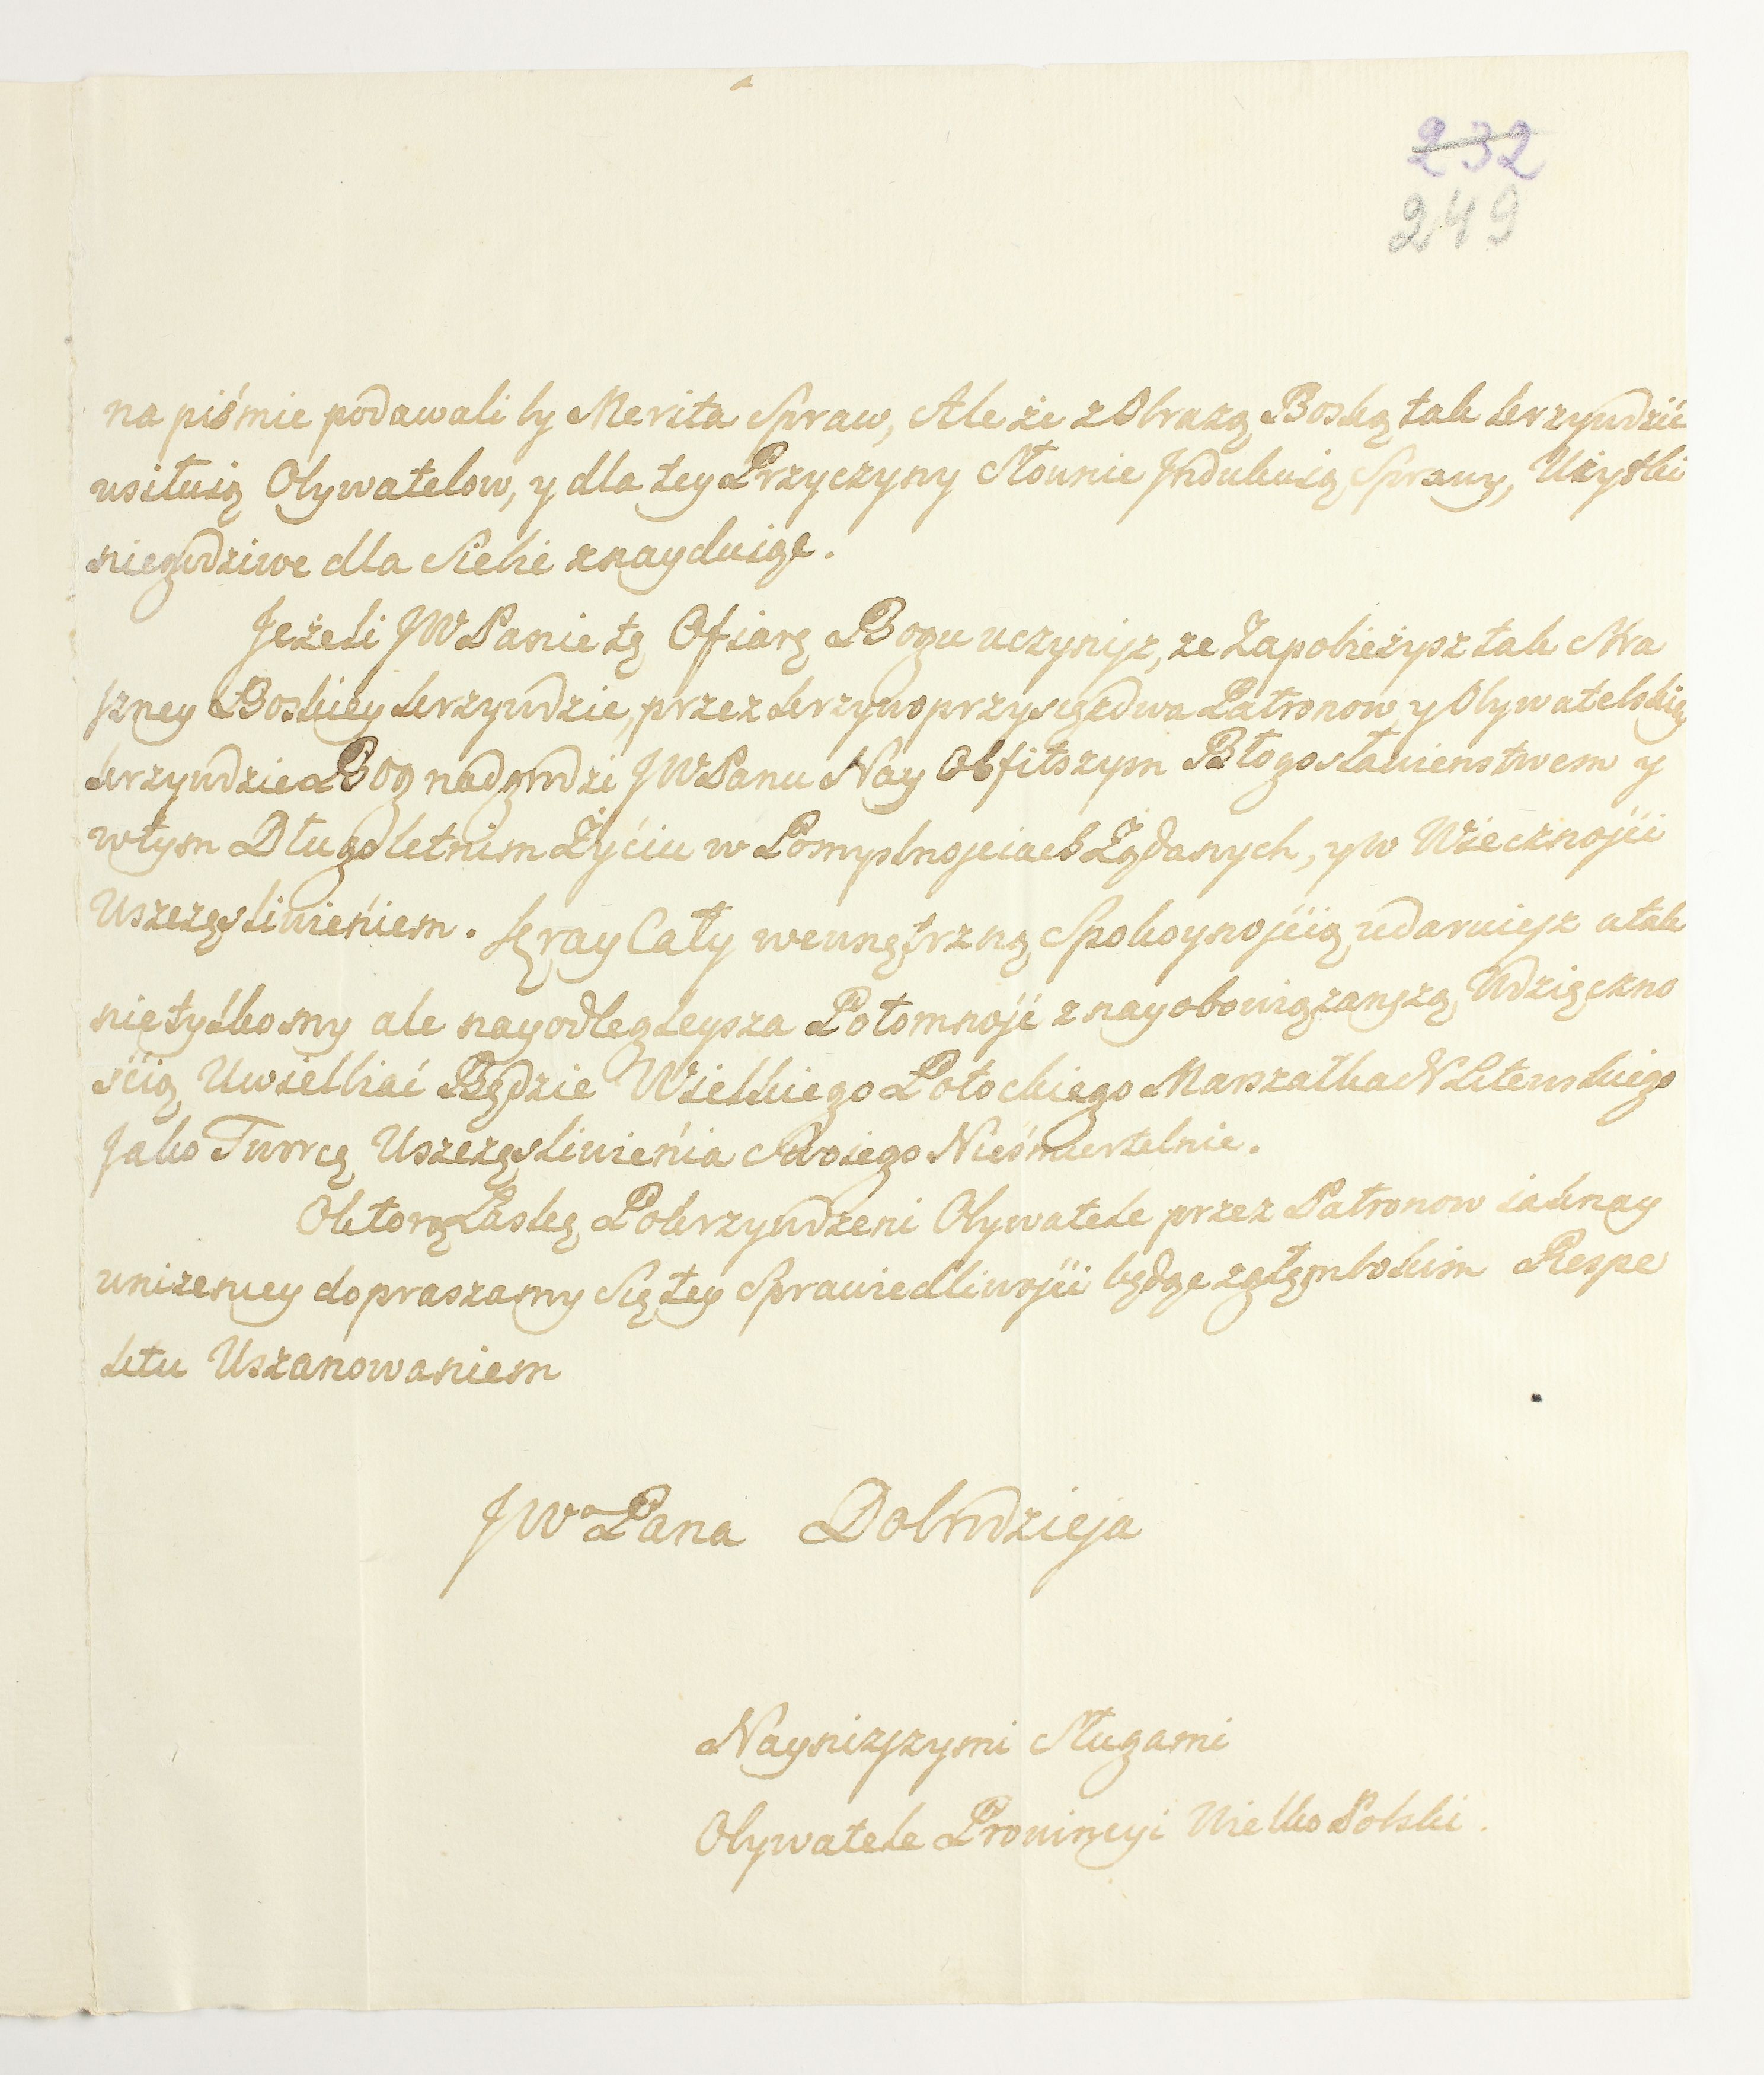 232
249
na piśmie podawali by Merita Spraw, Ale że z Obrazą Boską tak krzywdzić
usiłuią Obywatelow, y dla tey Przyczyny Słownie Jndukuią Sprawy, Użytki
niegodziwe dla Siebie znayduiąc.
Jeżeli JWPanie tę Ofiarę Bogu uczynisz, ze Zapobieżysz tak Stra
szney Boskiey krzywdzie, przez krzywoprzysięzdwa Patronow, y Obywatelskiey
krzywdzie Bog nadgrodzi JWPanu Nay Obfitszym Błogosławienstwem y
w tym Długoletnim Życiu w Pomyslnosciach Żądanych, y w Wieczności
Uszczęsliwieniem. Kray Cały wewnętrzną Spokoynością udaruiesz a tak
nie tylko my ale nayodlegleysza Potomność z nayobowiązanszą Wdzięczno
ścią Uwielbiać Będzie Wielkiego Potockiego Marszałka N Litewskiego
Jako Tworcę Uszczęsliwienia Swoiego Nieśmiertelnie.
O ktorą Łaskę Pokrzywdzeni Obywatele przez Patronow iak nay
unizeniey dopraszamy Się tey Sprawiedliwości będąc z głęmbokim Respe
ktu Uszanowaniem
JWPana Dobrodzieja
Nayniższymi Sługami
Obywatele Prowincyi Wielko Polski.